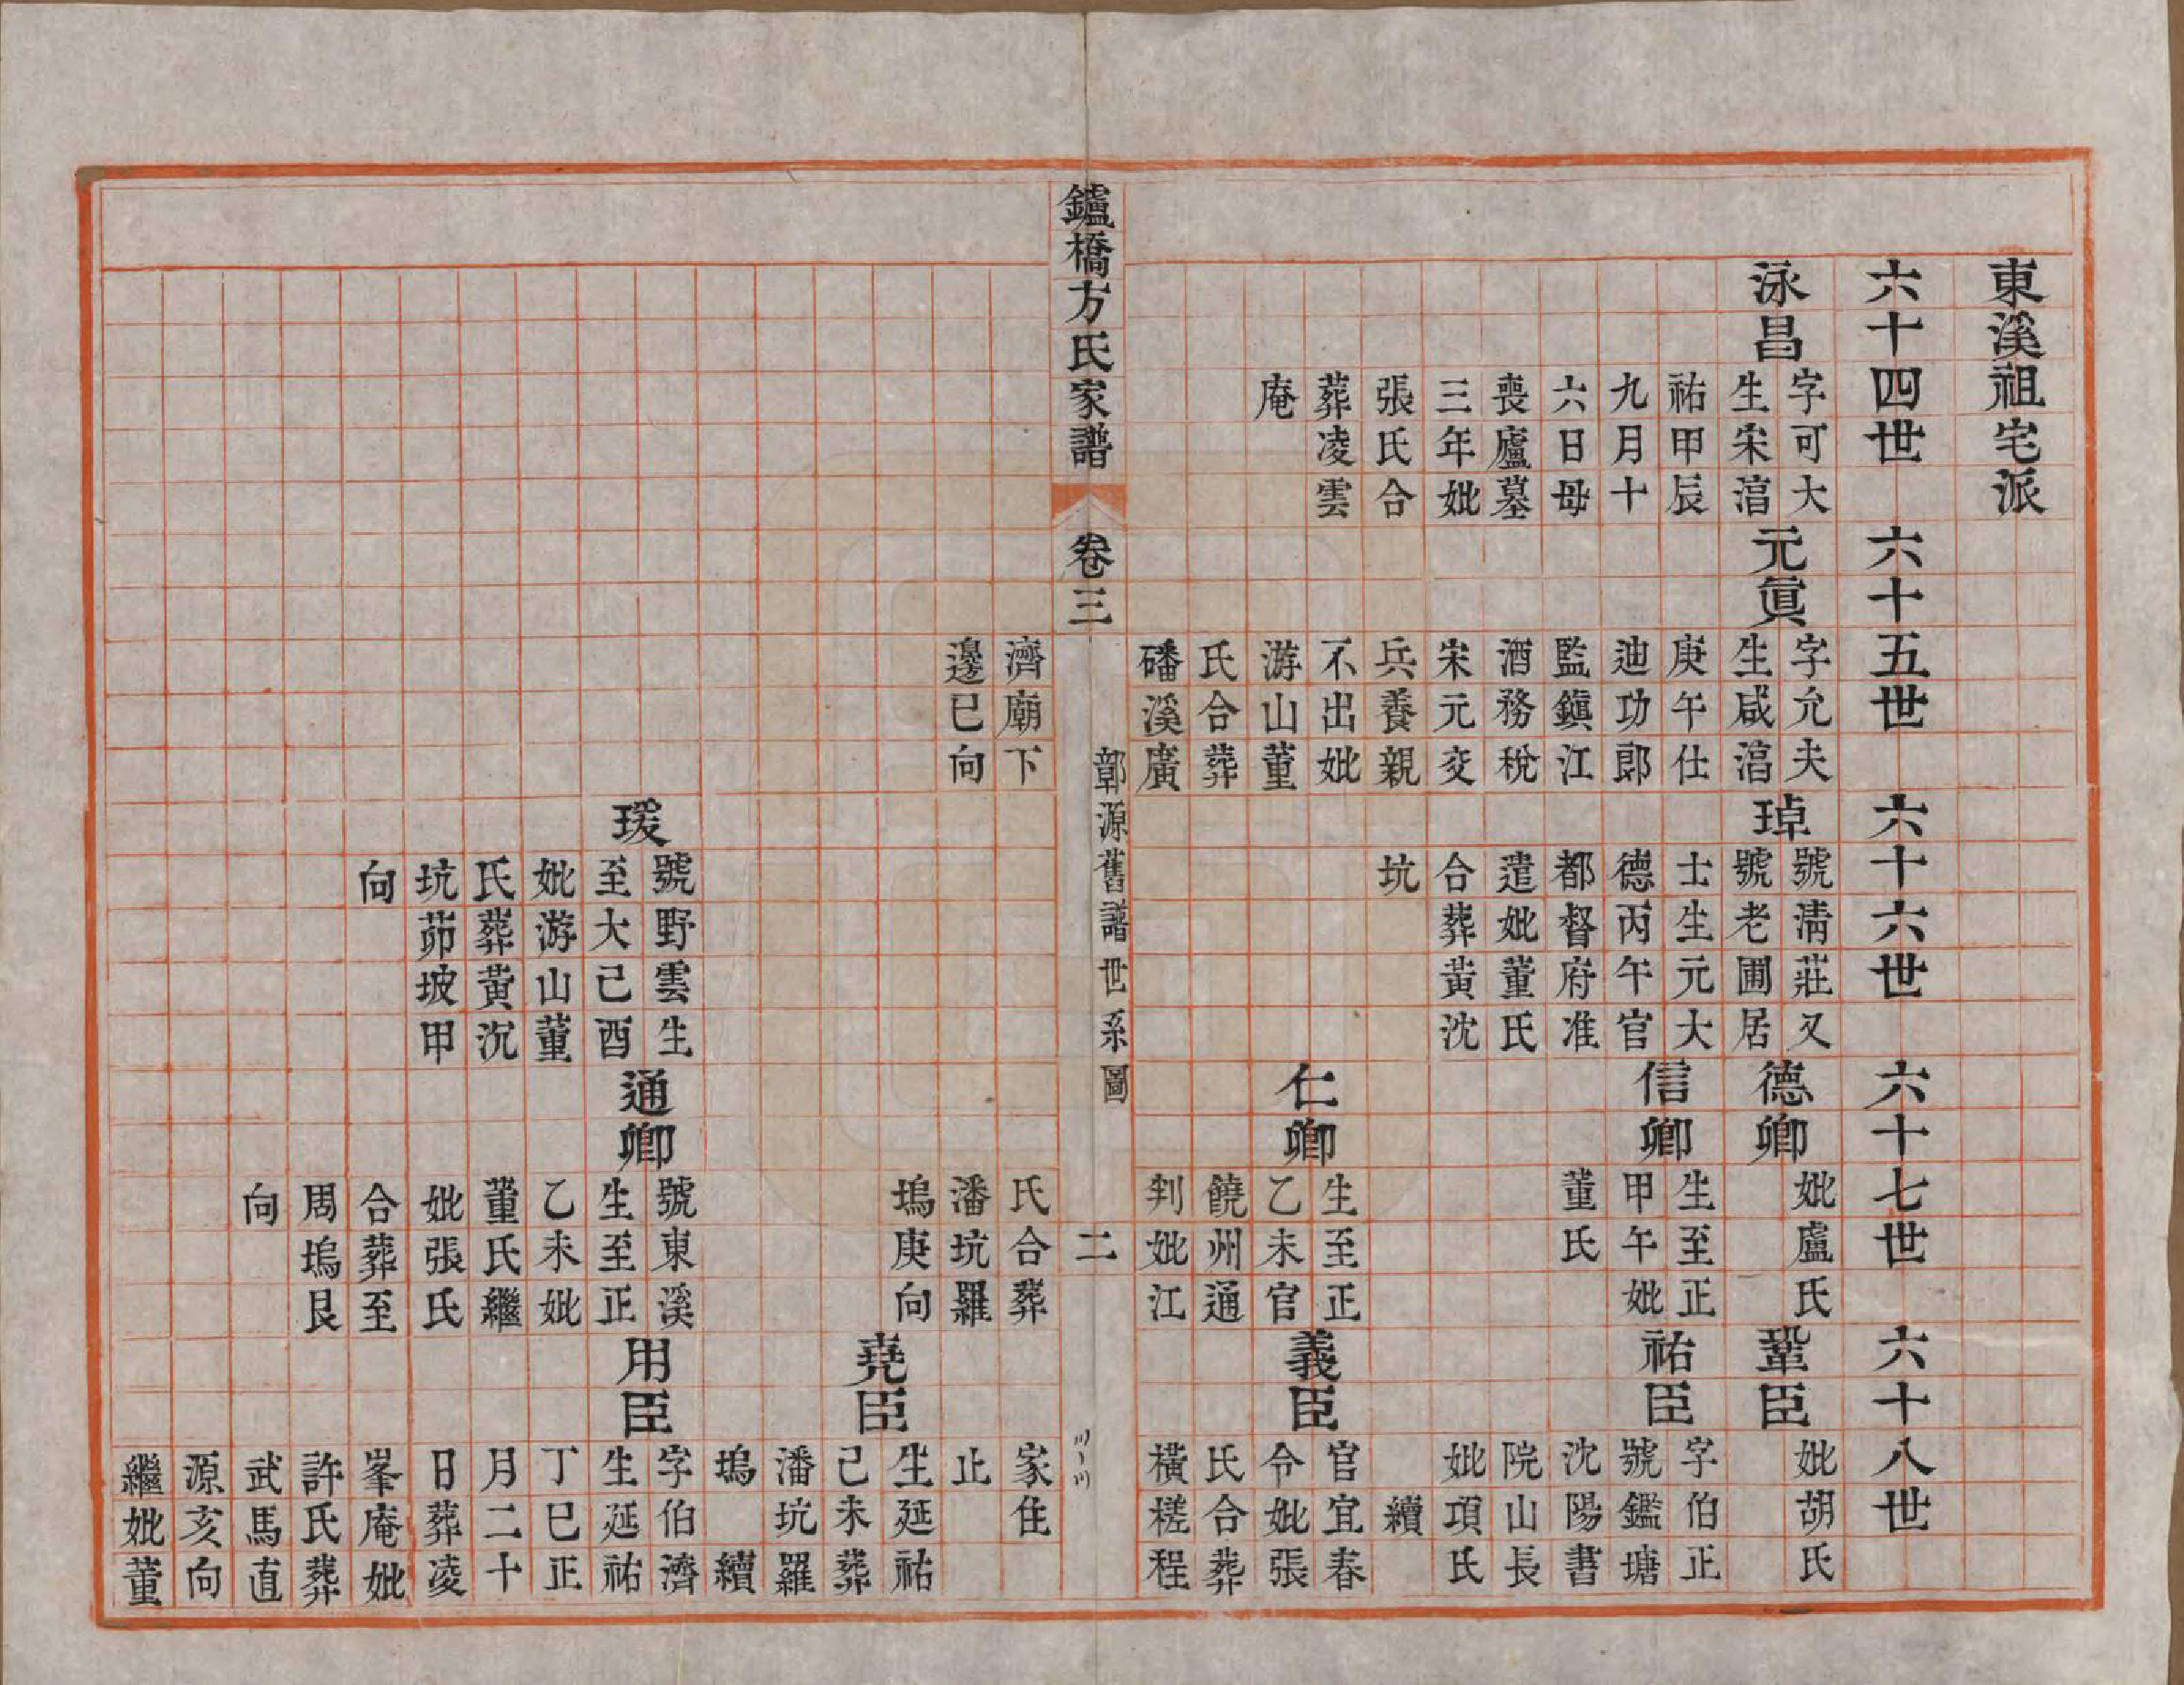 東溪祖宅派
六十四世
六十五世
六十六世
六十七世
六十八世
泳昌
字可大
生宋湻
祐甲辰
九月十
六日母
喪廬墓
三年妣
張氏合
葬凌雲
庵
元眞
字允夫
生咸湻
庚午仕
迪功郎
監鎭江
酒務稅
宋元交
兵養親
不出妣
游山董
氏合葬
磻溪廣
濟廟下
邊巳向
琸
號淸莊又
號老圃居
士生元大
德丙午官
都督府准
遣妣董氏
合葬黃沈
坑
德卿
妣盧氏
鞏臣
妣胡氏
信卿
生至正
甲午妣
董氏
祐臣
字伯正
號鑑塘
沈陽書
院山長
妣項氏
續
仁卿
生至正
乙未官
饒州通
判妣江
氏合葬
潘坑羅
塢庚向
義臣
官宜春
令妣張
氏合葬
橫槎程
家住
止
堯臣
生延祐
己未葬
潘坑羅
塢
續
瑗
號野雲生
至大己酉
妣游山董
氏葬黃沉
坑茆坡甲
向
通卿
號東溪
生至正
乙未妣
董氏繼
妣張氏
合葬至
周塢艮
向
用臣
字伯濟
生延祐
丁巳正
月二十
日葬凌
峯庵妣
許氏葬
武馬直
源亥向
繼妣董
鑪橋方氏家譜
卷三
鄣源舊譜世系圖
二